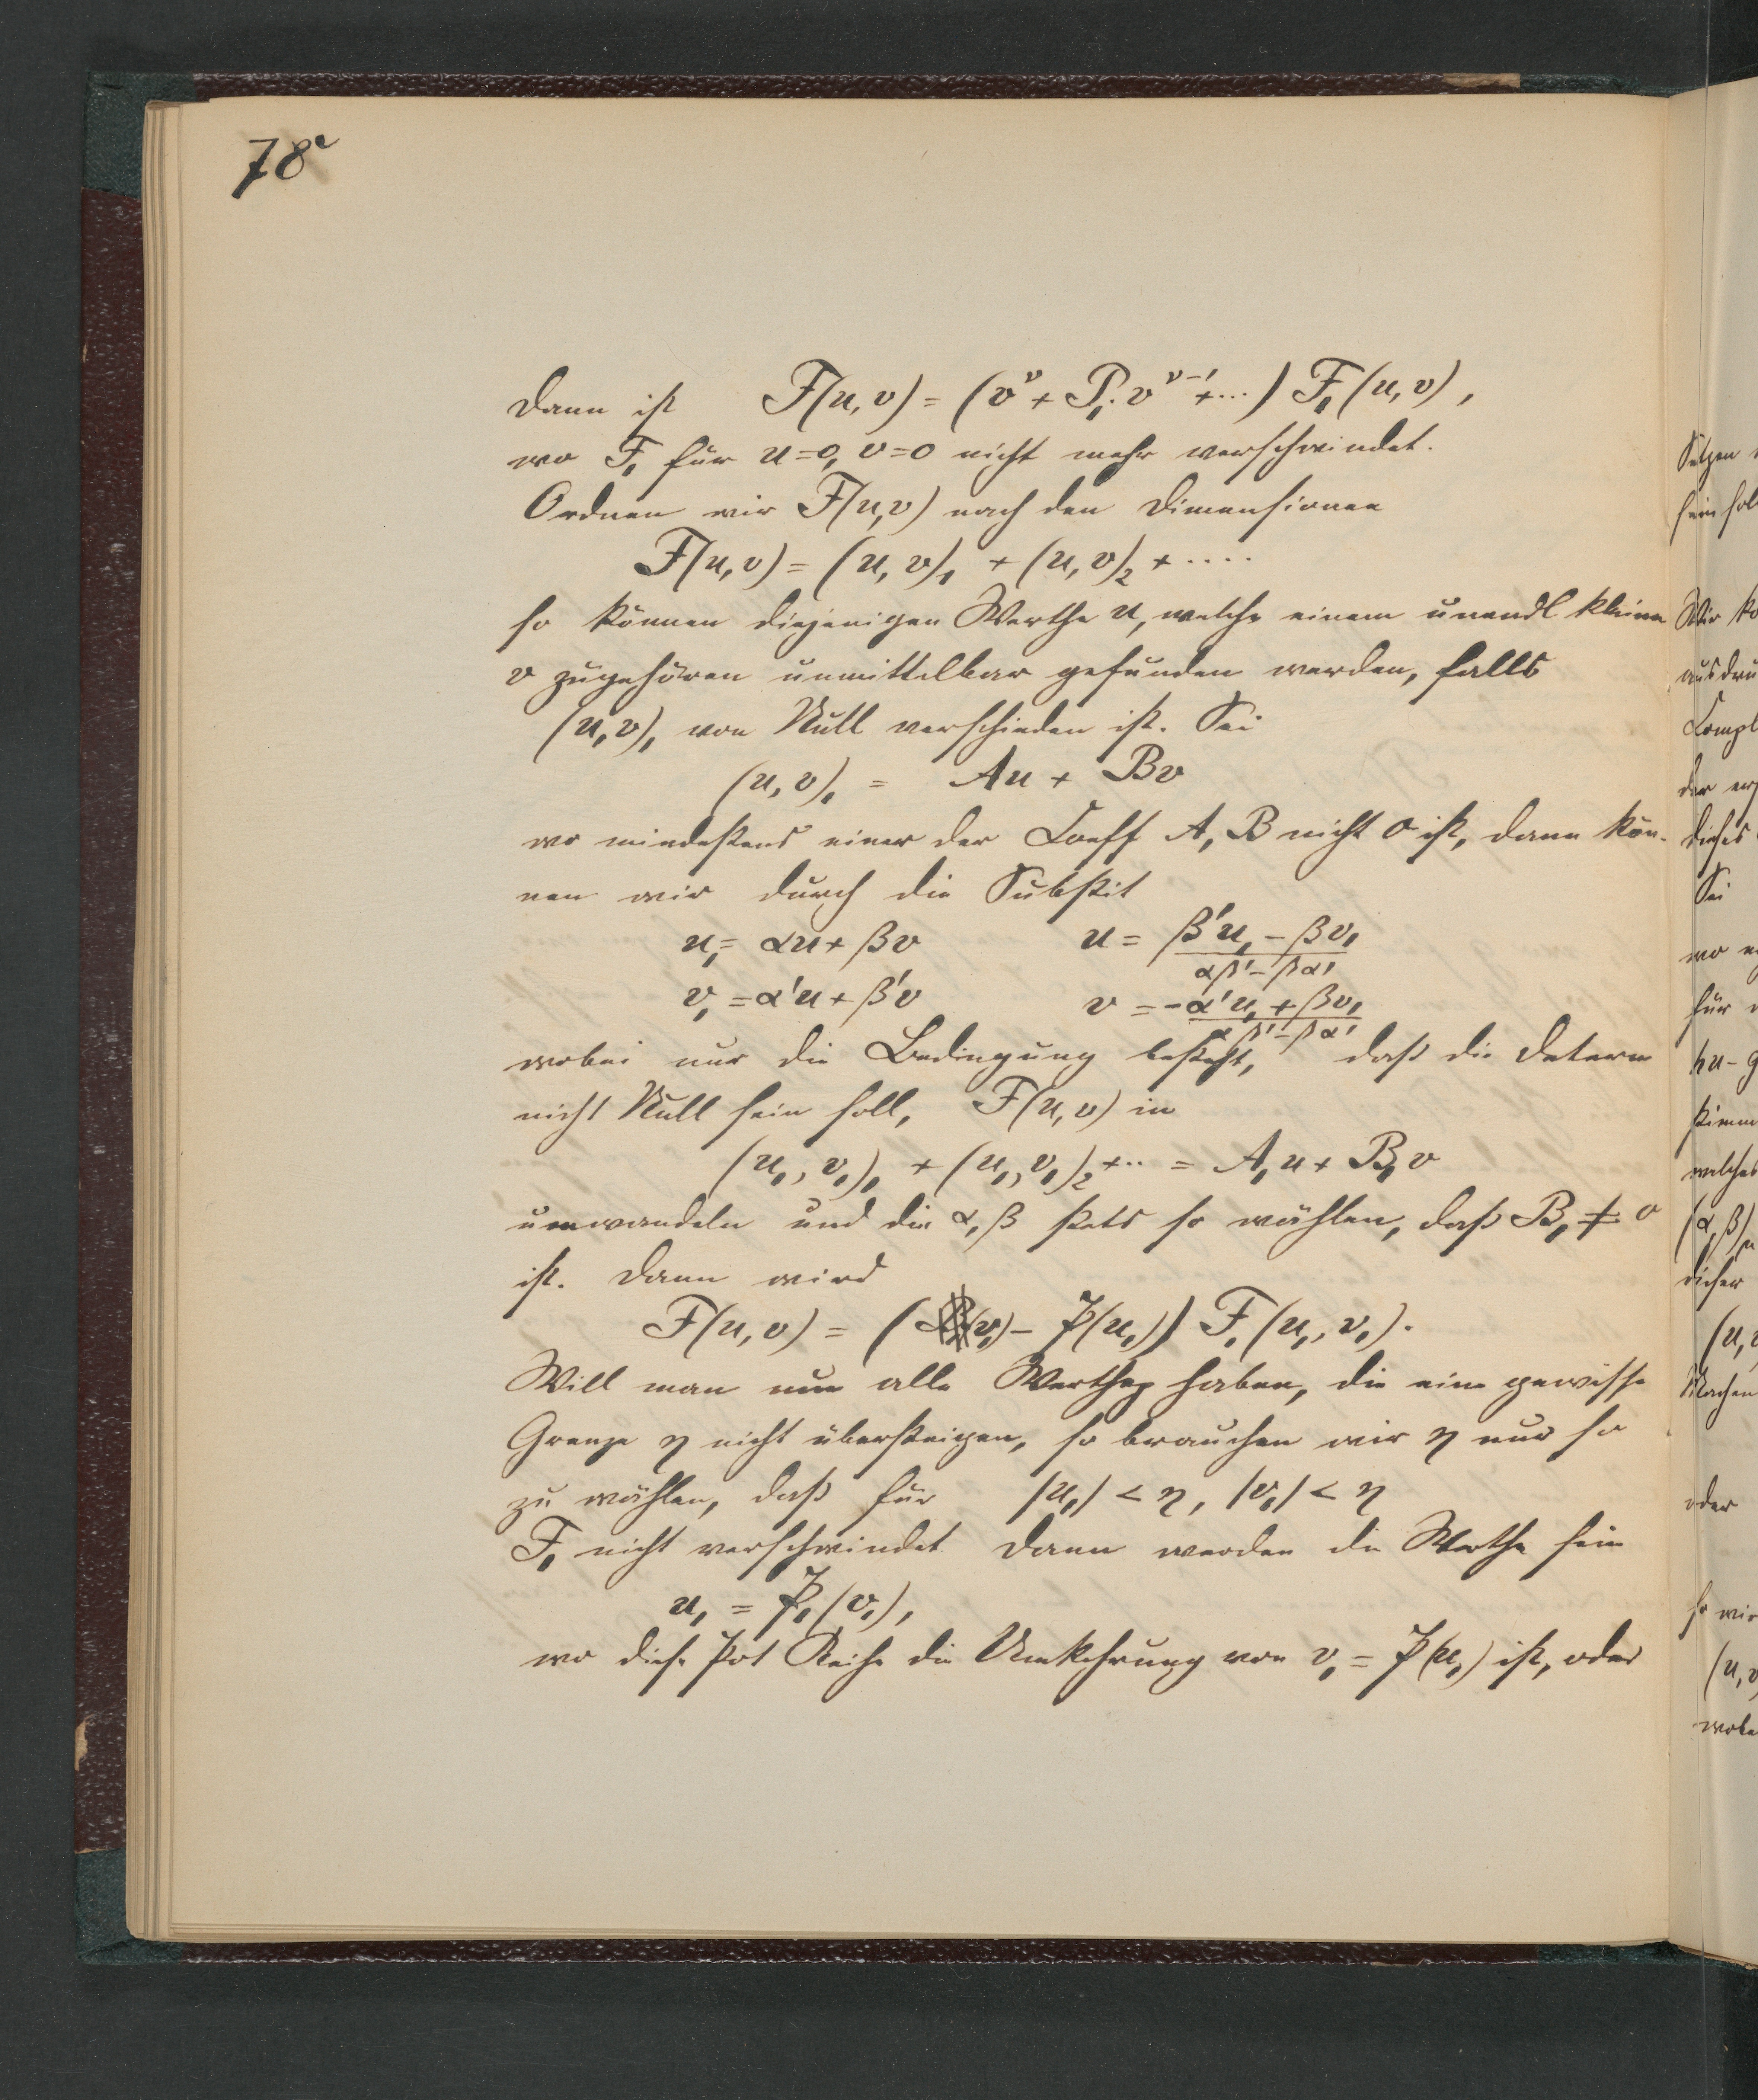 78a
Dann ist F(u,v) = (v^ν + P₁.v^{ν-1} + ...) F₁(u,v),
wo F₁ für u=0, v=0 nicht mehr verschwindet.
Ordnen wir F(u,v) nach den Dimensionen
F(u,v) = (u,v)₁ + (u,v)₂ + ....
so können diejenigen Werthe u, welche einem unendl kleinen
v zugehören unmittelbar gefunden werden, falls
(u,v)₁ von Null verschieden ist. Sei
(u,v)₁ = Au + Bv
wo mindestens einer der Coeff A, B nicht 0 ist, dann kön-
nen wir durch die Substit
u₁ = αu + βv u = (β'u₁ - βv₁)/(αβ' - βα')
v₁ = α'u + β'v v = (-α'u₁ + βv₁)/(αβ' - βα')
wobei nur die Bedingung besteht, daß die Determ
nicht Null sein soll, F(u,v) in
(u₁, v₁)₁ + (u₁, v₁)₂ + .. = A₁u + B₁v
umwandeln und die α, β stets so wählen, daß B₁ ≠ 0
ist. Dann wird
F(u,v) = ((v₁) - P(u₁)) F₁(u₁, v₁).
Will man nun alle Werthe haben, die eine gewisse
Grenze η nicht übersteigen, so brauchen wir η nur so
zu wählen, daß für |u₁| < η, |v₁| < η
F₁ nicht verschwindet Dann werden die Werthe sein
u₁ = P₁(v₁),
wo diese Pot Reihe die Umkehrung von v₁ = P(u₁) ist, oder